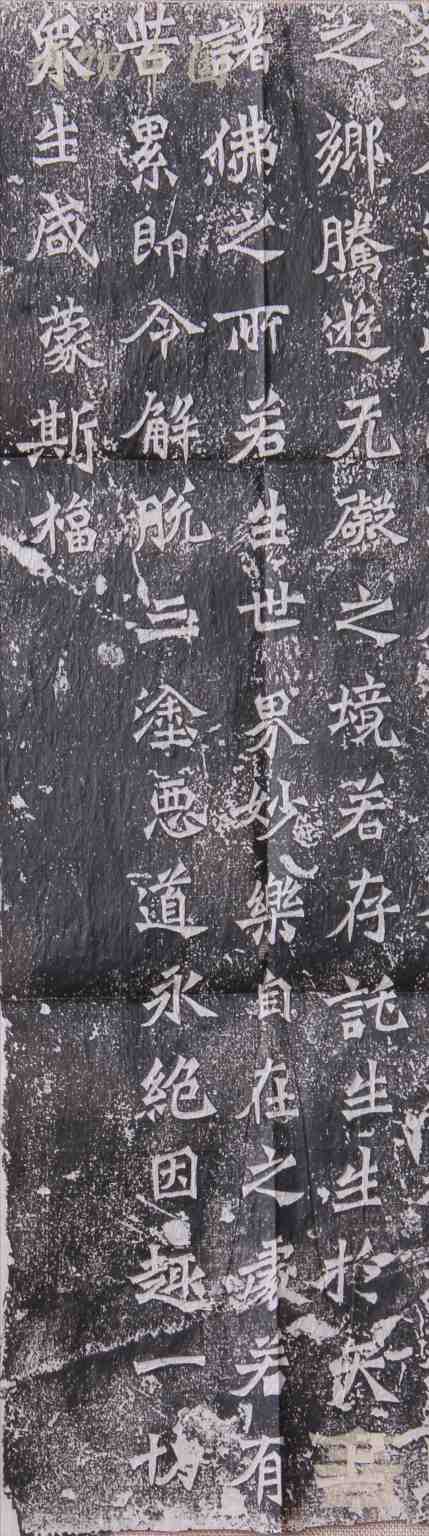 之鄉騰遊无礙之境若存託生生於天
諸佛之所若生世界妙樂自在之處若有
苦累即令解脫三塗惡道永絕因趣一切
眾生咸蒙斯福